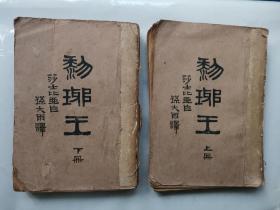 黎琊王
莎士比亞著
孫大雨譯
上冊
黎琊王
莎士比亞著
孫大雨譯
下冊